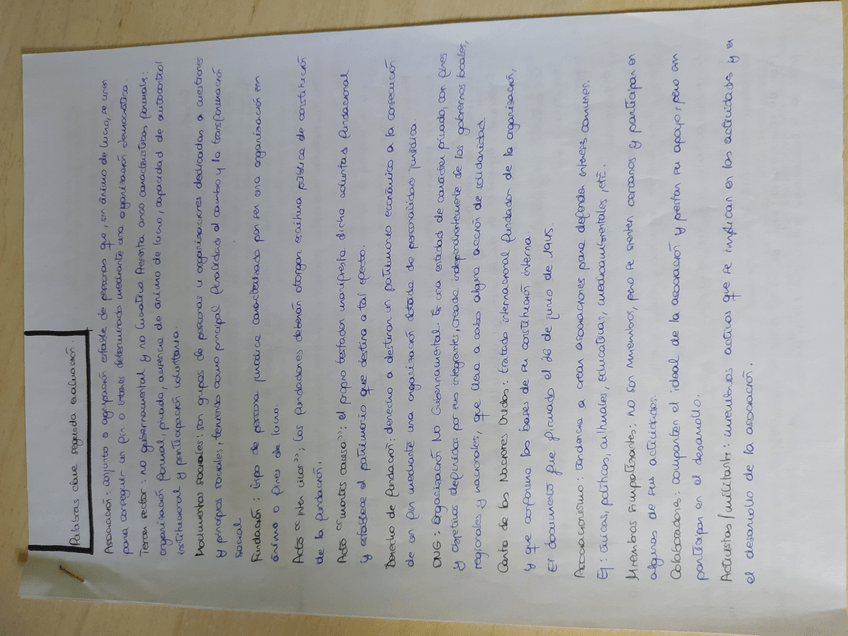 Palabras clave segunda evaluación.
Asociación: conjunto o agrupación estable de personas que, sin ánimo de lucro, se unen
para conseguir un fin o interés determinado mediante una organización democrática.
Tercer sector: no gubernamental y no lucrativo. Presenta cinco características formales:
organización formal, privado, ausencia de ánimo de lucro, capacidad de autocontrol
institucional y participación voluntaria.
Movimientos sociales: son grupos de personas u organizaciones dedicadas a cuestiones
y principios sociales, teniendo como principal finalidad el cambio y la transformación
social.
Fundación: tipo de persona jurídica caracterizada por ser una organización sin
ánimo o fines de lucro.
Acto "inter vivos": los fundadores deberán otorgar escritura pública de constitución
de la fundación.
Acto "mortis causa": el propio testador manifiesta dicha voluntad fundacional
y establece el patrimonio que destina a tal efecto.
Derecho de fundación: derecho a destinar un patrimonio económico a la consecución
de un fin mediante una organización dotada de personalidad jurídica.
ONG: organización No Gubernamental. Es una entidad de carácter privado, con fines
y objetivos definidos por sus integrantes, creada independientemente de los gobiernos locales,
regionales y nacionales, que lleva a cabo alguna acción de solidaridad.
Carta de las Naciones Unidas: tratado internacional fundador de la organización,
y que conforma las bases de su constitución interna.
El documento fue firmado el 26 de junio de 1945.
Asociacionismo: tendencia a crear asociaciones para defender intereses comunes.
Ej: cívicas, políticas, culturales, educativas, medioambientales, etc.
Miembros simpatizantes: no son miembros, pero se sienten cercanos y participan en
algunas de sus actividades.
Colaboradores: comparten el ideal de la asociación y prestan su apoyo, pero sin
participar en el desarrollo.
Activistas/militante: miembros activos que se implican en las actividades y en
el desarrollo de la asociación.